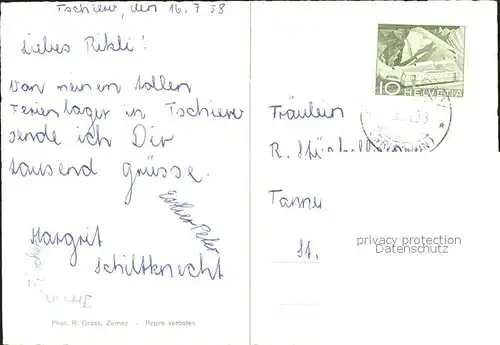 Tschierv, den 16. 7 58
Liebes Rikli!
Von meinem tollen
Ferienlager in Tschierv
sende ich Dir
tausend grüsse.
Esther Peter
Margrit
Schiltknecht
Phot. R. Grass, Zernez - Repro verboten
10 HELVETIA
Fräulein
R.
Tanne
St.
privacy protection
Datenschutz